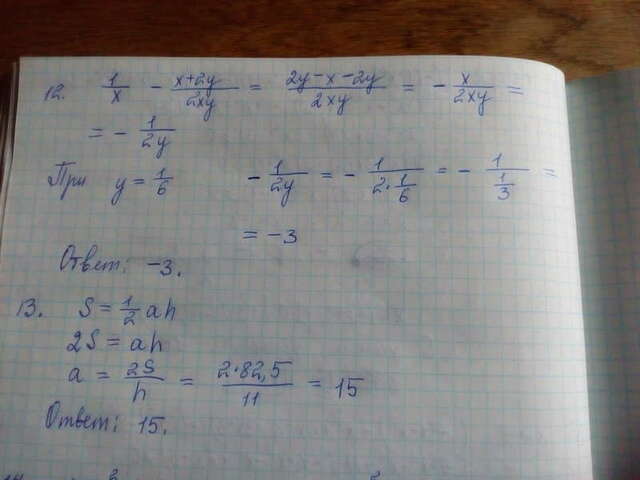 12. 1/x - (x+2y)/(2xy) = (2y-x-2y)/(2xy) = - x/(2xy) =
= - 1/(2y)
При y = 1/6   - 1/(2y) = - 1/(2·1/6) = - 1/(1/3) =
= -3
Ответ: -3.
13. S = 1/2 ah
2S = ah
a = 2S/h = (2·82,5)/11 = 15
Ответ: 15.